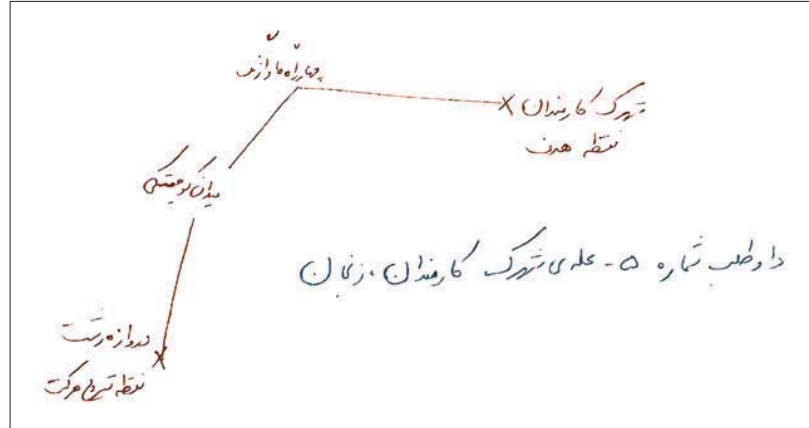 چهارراه
شهرک کارمندان
نقطه هدف
میدان
داوطلب شماره ۵ - محله‌ی شهرک کارمندان، زنجان
دروازه رشت
نقطه شروع حرکت